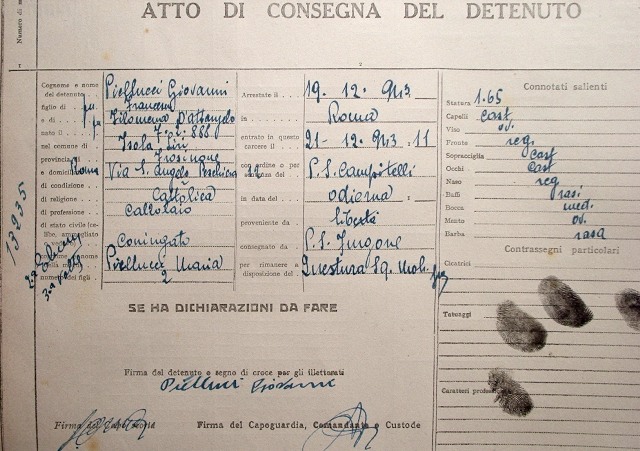 ATTO DI CONSEGNA DEL DETENUTO
Cognome e nome
del detenuto Piellucci Giovanni
figlio di fu Francesco
e di fu Filomena D'Attangelo
nato il 7.2.888
nel comune di Isola Liri
provincia di Frosinone
e domicilio Roma Via S. Angelo Peschiera 12
di condizione
di religione Cattolica
di professione Calzolaio
di stato civile (ce-
libe, ammogliato Coniugato
Piellucci Maria
numero dei figli 2
Arrestato il 19.12.943
in Roma
entrato in questo
carcere il 21-12.943.11
con ordine o per
P.S. Campitelli
in data del odierna
proveniente da libertà
consegnato da P.S.
per rimanere a
disposizione del Questura Sq. Mob.
Connotati salienti
Statura 1.65
Capelli cast
Viso ov.
Fronte reg.
Sopracciglia cast
Occhi cast
Naso reg
Baffi rasi
Bocca med.
Mento ov.
Barba rasa
Contrassegni particolari
Cicatrici
Tatuaggi
Caratteri
13235
SE HA DICHIARAZIONI DA FARE
Firma del detenuto o segno di croce per gli illetterati
Piellucci Giovanni
Firma del
Firma del Capoguardia, Comandante o Custode